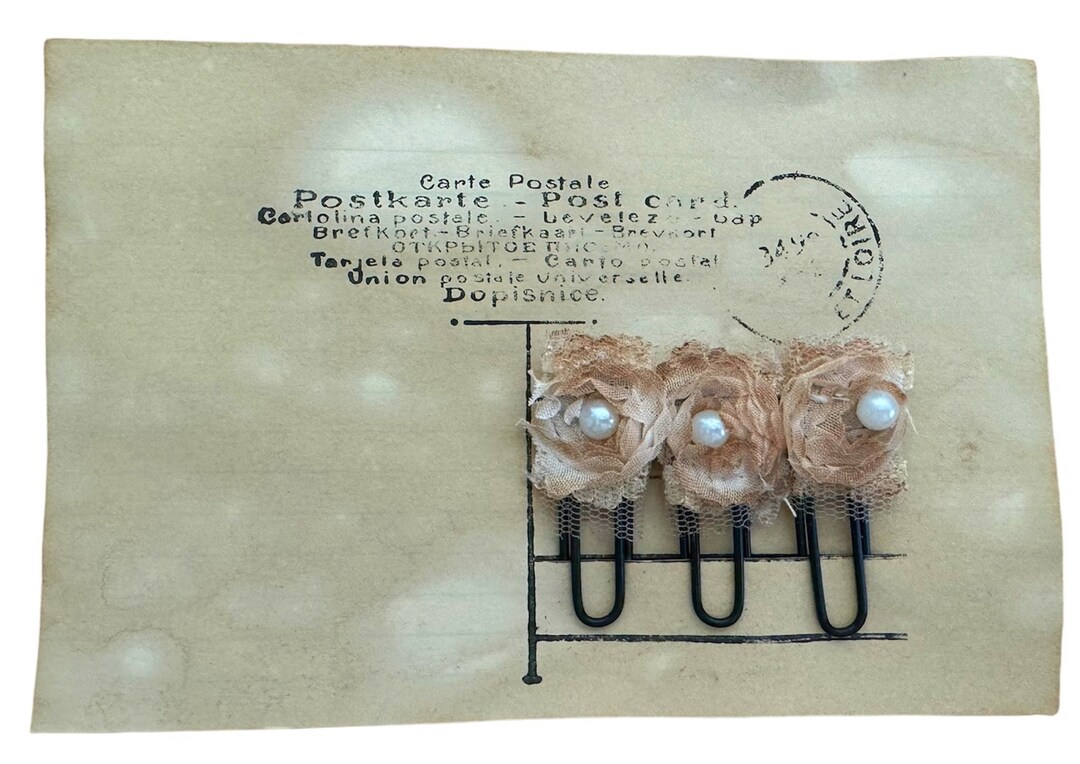 Carte Postale
Postkarte - Post card.
Cartolina postale. - Levelez - Lap
Brefkort - Briefkaart - Brevkort
ОТКРЫТОЕ ПИСЬМО.
Tarjeta postal. - Carto postal
Union postale universelle.
Dopisnice.
LOIRE